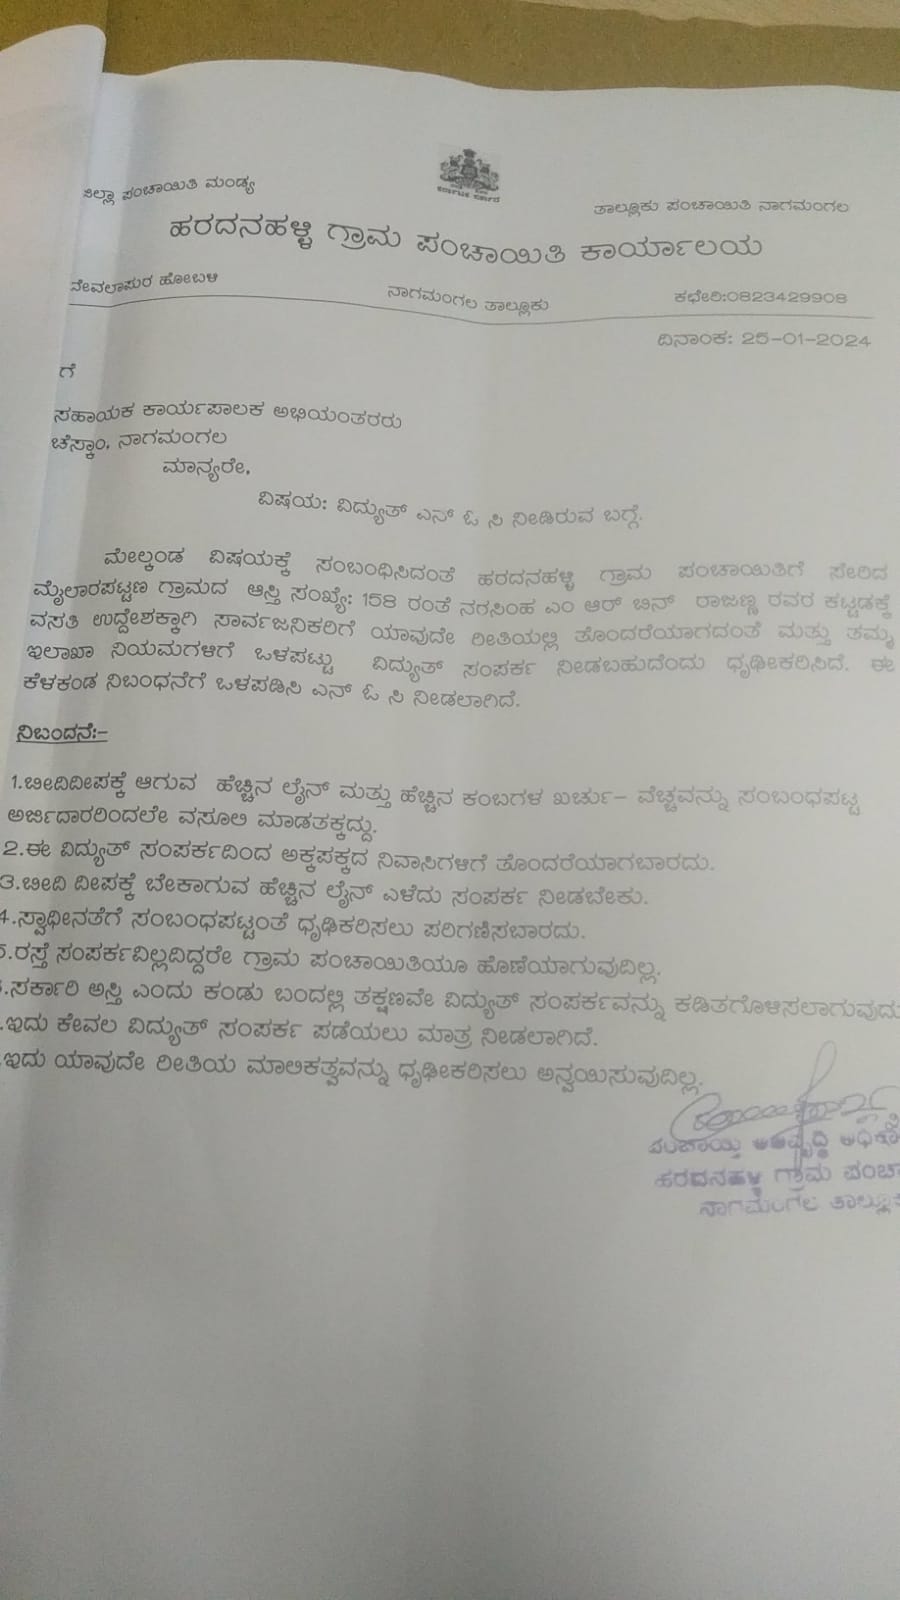 ಜಿಲ್ಲಾ ಪಂಚಾಯಿತಿ ಮಂಡ್ಯ
ತಾಲ್ಲೂಕು ಪಂಚಾಯಿತಿ ನಾಗಮಂಗಲ
ಹರದನಹಳ್ಳಿ ಗ್ರಾಮ ಪಂಚಾಯಿತಿ ಕಾರ್ಯಾಲಯ
ದೇವಲಾಪುರ ಹೋಬಳಿ
ನಾಗಮಂಗಲ ತಾಲ್ಲೂಕು
ಕಛೇರಿ:0823429908
ದಿನಾಂಕ: 25-01-2024
ಗೆ
ಸಹಾಯಕ ಕಾರ್ಯಪಾಲಕ ಅಭಿಯಂತರರು
ಚೆಸ್ಕಾಂ, ನಾಗಮಂಗಲ
ಮಾನ್ಯರೇ,
ವಿಷಯ: ವಿದ್ಯುತ್ ಎನ್ ಓ ಸಿ ನೀಡಿರುವ ಬಗ್ಗೆ.
ಮೇಲ್ಕಂಡ ವಿಷಯಕ್ಕೆ ಸಂಬಂಧಿಸಿದಂತೆ ಹರದನಹಳ್ಳಿ ಗ್ರಾಮ ಪಂಚಾಯಿತಿಗೆ ಸೇರಿದ
ಮೈಲಾರಪಟ್ಟಣ ಗ್ರಾಮದ ಆಸ್ತಿ ಸಂಖ್ಯೆ: 158 ರಂತೆ ನರಸಿಂಹ ಎಂ ಆರ್ ಬಿನ್ ರಾಜಣ್ಣ ರವರ ಕಟ್ಟಡಕ್ಕೆ
ವಸತಿ ಉದ್ದೇಶಕ್ಕಾಗಿ ಸಾರ್ವಜನಿಕರಿಗೆ ಯಾವುದೇ ರೀತಿಯಲ್ಲಿ ತೊಂದರೆಯಾಗದಂತೆ ಮತ್ತು ತಮ್ಮ
ಇಲಾಖಾ ನಿಯಮಗಳಿಗೆ ಒಳಪಟ್ಟು ವಿದ್ಯುತ್ ಸಂಪರ್ಕ ನೀಡಬಹುದೆಂದು ಧೃಢೀಕರಿಸಿದೆ. ಈ
ಕೆಳಕಂಡ ನಿಬಂಧನೆಗೆ ಒಳಪಡಿಸಿ ಎನ್ ಓ ಸಿ ನೀಡಲಾಗಿದೆ.
ನಿಬಂದನೆ:-
1.ಬೀದಿದೀಪಕ್ಕೆ ಆಗುವ ಹೆಚ್ಚಿನ ಲೈನ್ ಮತ್ತು ಹೆಚ್ಚಿನ ಕಂಬಗಳ ಖರ್ಚು- ವೆಚ್ಚವನ್ನು ಸಂಬಂಧಪಟ್ಟ
ಅರ್ಜಿದಾರರಿಂದಲೇ ವಸೂಲಿ ಮಾಡತಕ್ಕದ್ದು.
2.ಈ ವಿದ್ಯುತ್ ಸಂಪರ್ಕದಿಂದ ಅಕ್ಕಪಕ್ಕದ ನಿವಾಸಿಗಳಿಗೆ ತೊಂದರೆಯಾಗಬಾರದು.
3.ಬೀದಿ ದೀಪಕ್ಕೆ ಬೇಕಾಗುವ ಹೆಚ್ಚಿನ ಲೈನ್ ಎಳೆದು ಸಂಪರ್ಕ ನೀಡಬೇಕು.
4.ಸ್ವಾಧೀನತೆಗೆ ಸಂಬಂಧಪಟ್ಟಂತೆ ಧೃಢಿಕರಿಸಲು ಪರಿಗಣಿಸಬಾರದು.
5.ರಸ್ತೆ ಸಂಪರ್ಕವಿಲ್ಲವಿದ್ದರೇ ಗ್ರಾಮ ಪಂಚಾಯಿತಿಯೂ ಹೊಣೆಯಾಗುವುದಿಲ್ಲ.
.ಸರ್ಕಾರಿ ಅಸ್ತಿ ಎಂದು ಕಂಡು ಬಂದಲ್ಲಿ ತಕ್ಷಣವೇ ವಿದ್ಯುತ್ ಸಂಪರ್ಕವನ್ನು ಕಡಿತಗೊಳಿಸಲಾಗುವುದು
.ಇದು ಕೇವಲ ವಿದ್ಯುತ್ ಸಂಪರ್ಕ ಪಡೆಯಲು ಮಾತ್ರ ನೀಡಲಾಗಿದೆ.
.ಇದು ಯಾವುದೇ ರೀತಿಯ ಮಾಲಿಕತ್ವವನ್ನು ಧೃಢೀಕರಿಸಲು ಅನ್ವಯಿಸುವುದಿಲ್ಲ.
ಪಂಚಾಯ್ತಿ ಅಭಿವೃದ್ಧಿ ಅಧಿಕಾ
ಹರದನಹಳ್ಳಿ ಗ್ರಾಮ ಪಂಚಾ
ನಾಗಮಂಗಲ ತಾಲ್ಲೂಕು